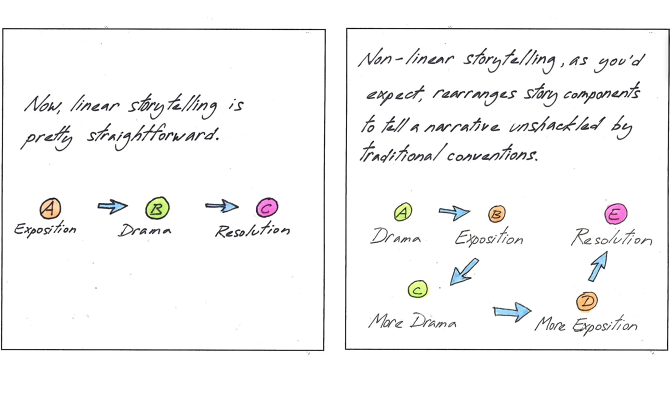 Now, linear storytelling is
pretty straightforward.
A
B
C
Exposition
Drama
Resolution
Non-linear storytelling, as you'd
expect, rearranges story components
to tell a narrative unshackled by
traditional conventions.
A
B
E
Drama
Exposition
Resolution
C
D
More Drama
More Exposition